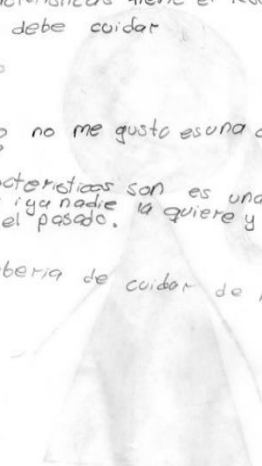 debe cuidar
no me gusta esuna
son es una
iya nadie la quiere y
el pasado.
de cuidar de